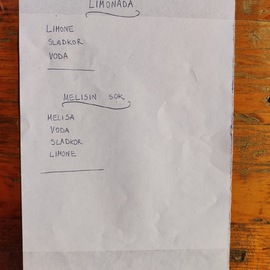 LIMONADA
LIMONE
SLADKOR
VODA
MELISIN SOK
MELISA
VODA
SLADKOR
LIMONE